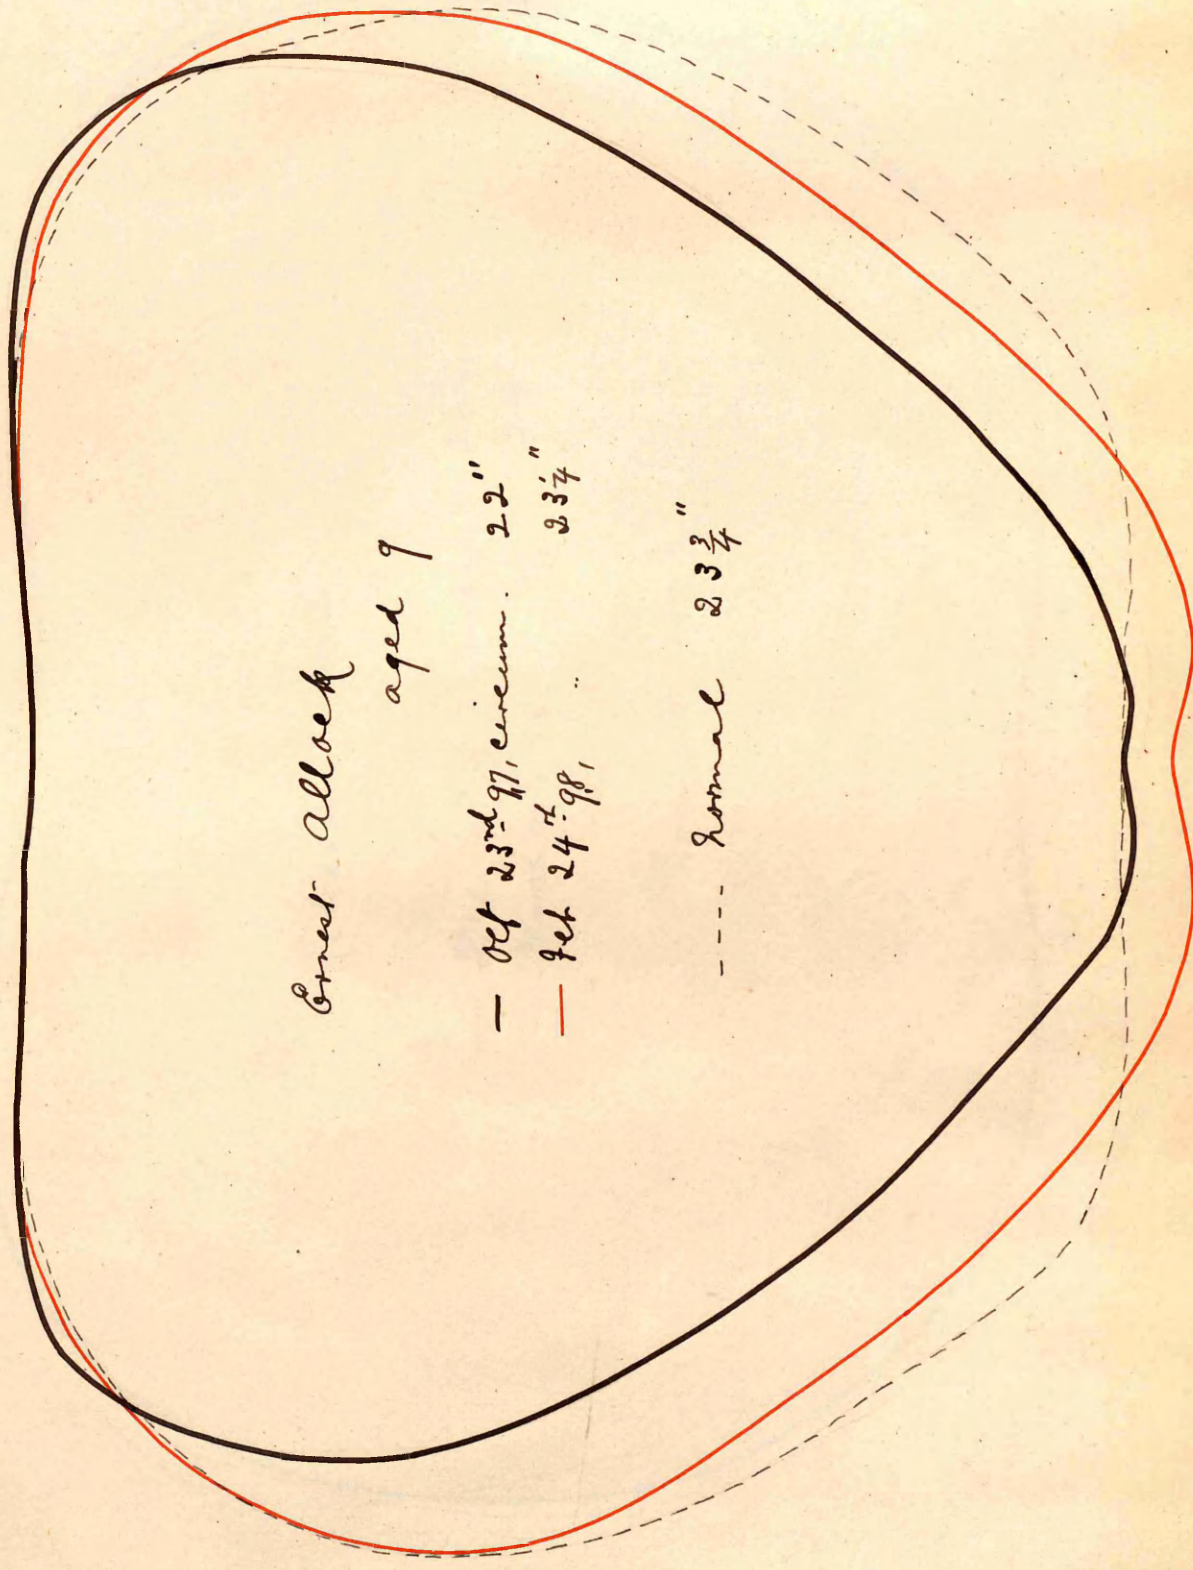 Ernest Allock
aged 9
— Oct 23rd 97, circum. 22"
— Feb 24th 98, .. 23¼"
---- Normal 23¾"